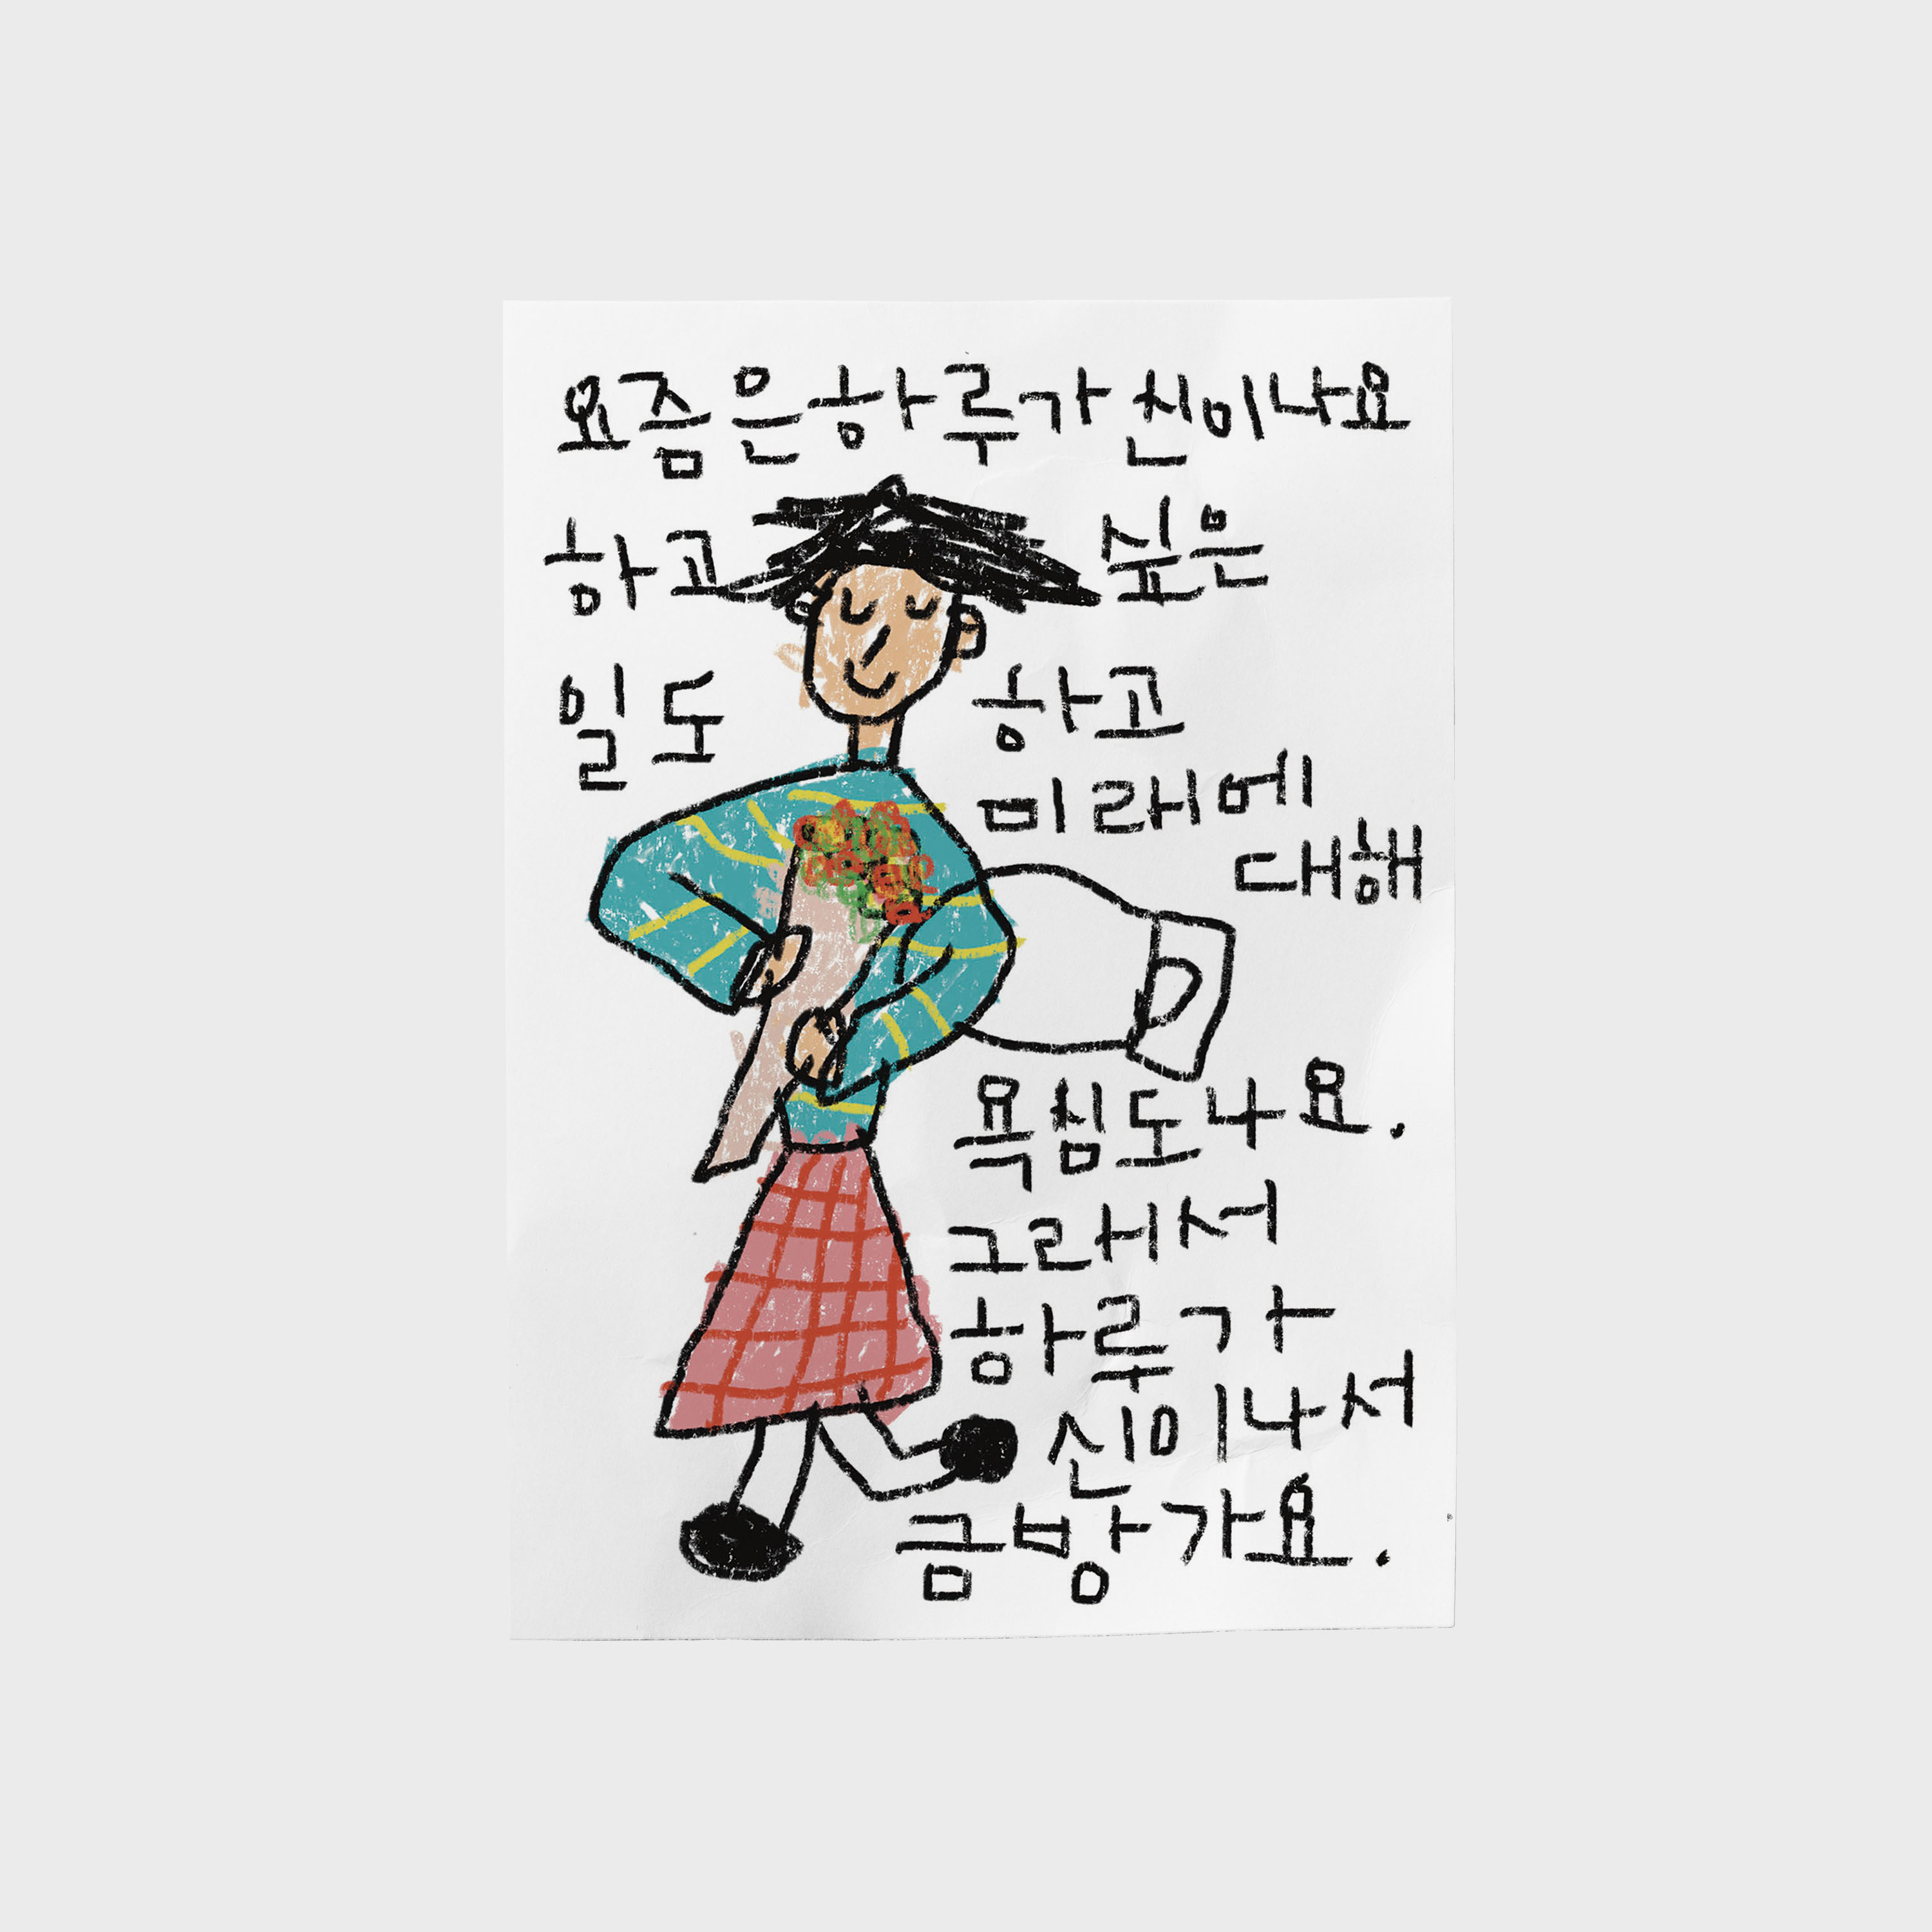 요즘은하루가 신이나요
하고 싶은
일도 하고
미래에
대해
욕심도나요.
그래서
하루가
신이나서
금방가요.